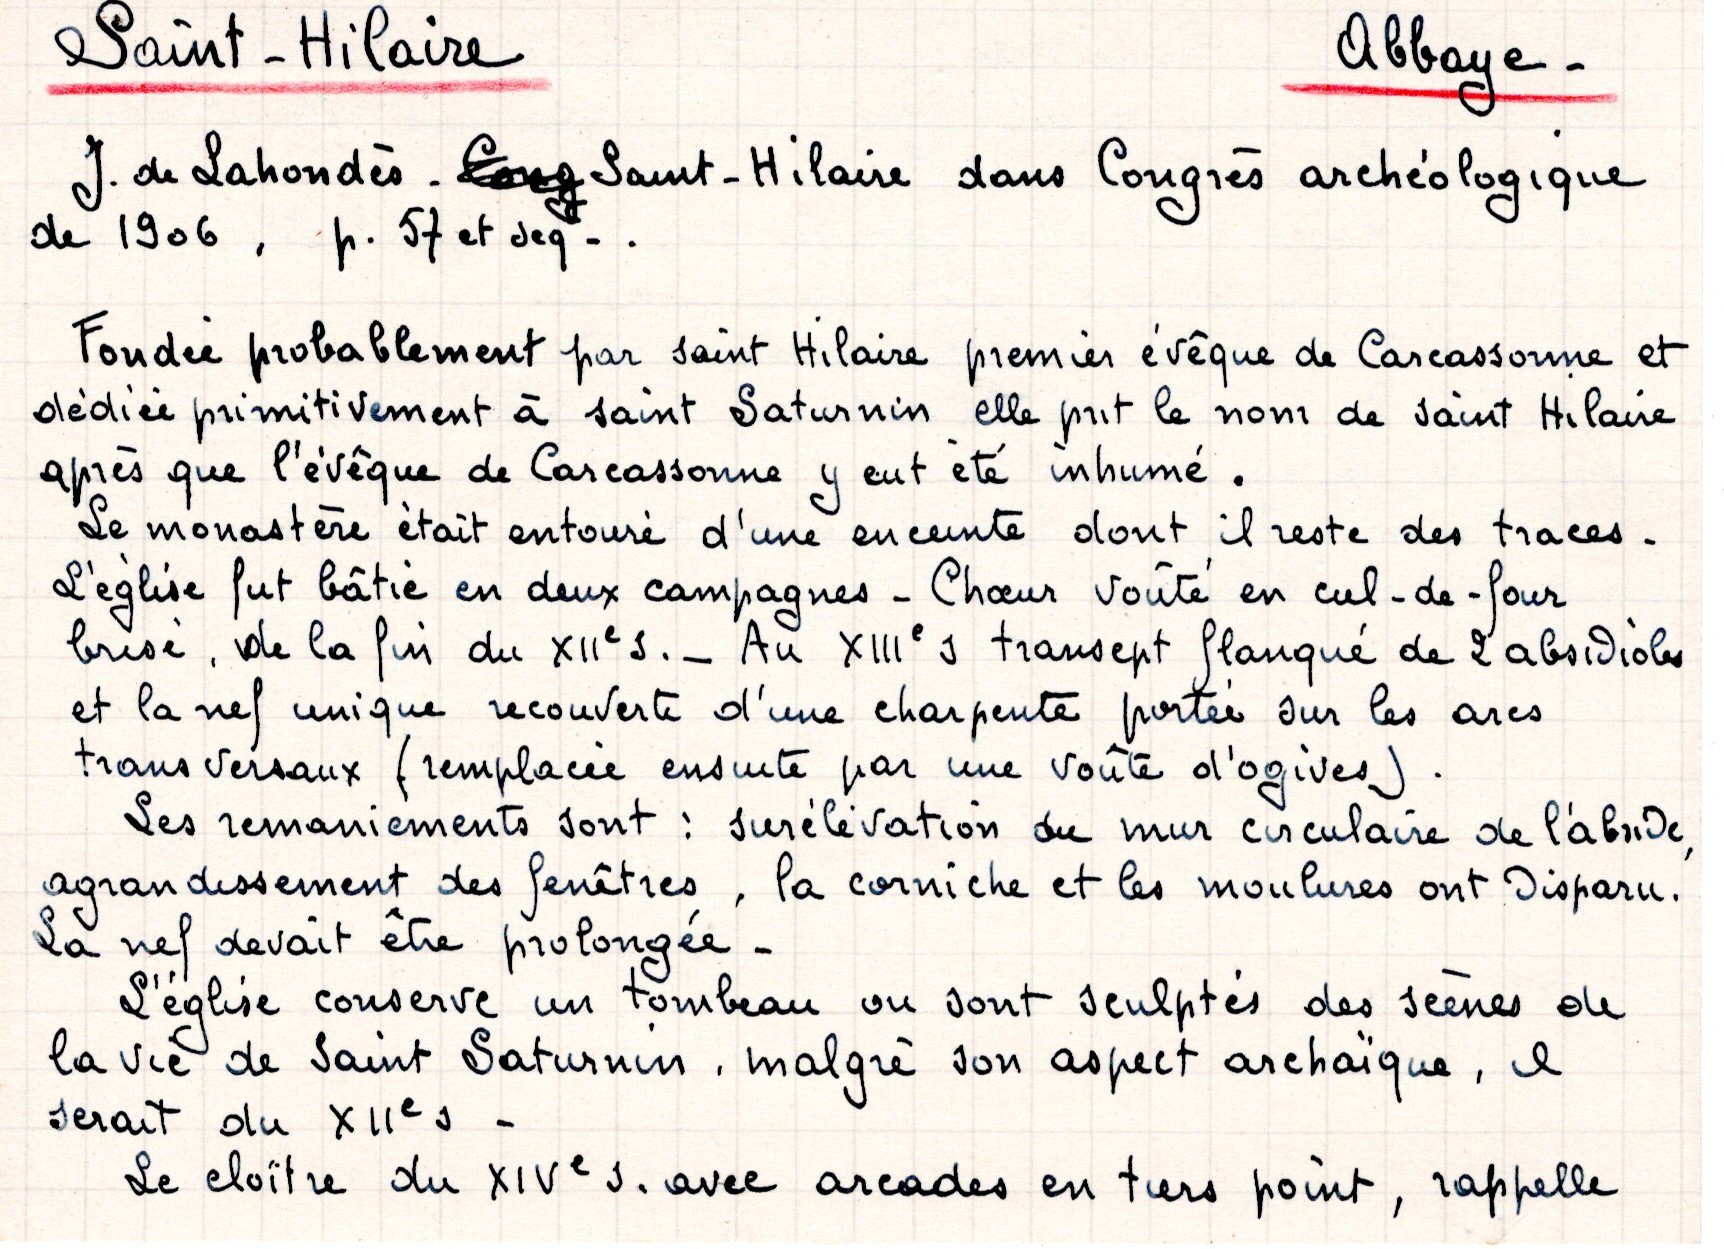 Saint-Hilaire Abbaye -
J. de Lahondès - Cong Saint-Hilaire dans Congrès archéologique
de 1906, p. 57 et seq - .
Fondée probablement par saint Hilaire premier évêque de Carcassonne et
dédiée primitivement à saint Saturnin elle prit le nom de saint Hilaire
après que l'évêque de Carcassonne y eut été inhumé.
Le monastère était entouré d'une enceinte dont il reste des traces -
L'église fut bâtie en deux campagnes - Chœur voûté en cul-de-four
brisé, de la fin du XIIe s. - Au XIIIe s transept flanqué de 2 absidioles
et la nef unique recouverte d'une charpente portée sur les arcs
transversaux (remplacée ensuite par une voûte d'ogives).
Les remaniements sont : surélévation du mur circulaire de l'abside,
agrandissement des fenêtres, la corniche et les moulures ont disparu.
La nef devait être prolongée -
L'église conserve un tombeau ou sont sculptés des scènes de
la vie de Saint Saturnin, malgré son aspect archaïque, il
serait du XIIe s -
Le cloître du XIVe s. avec arcades en tiers point, rappelle